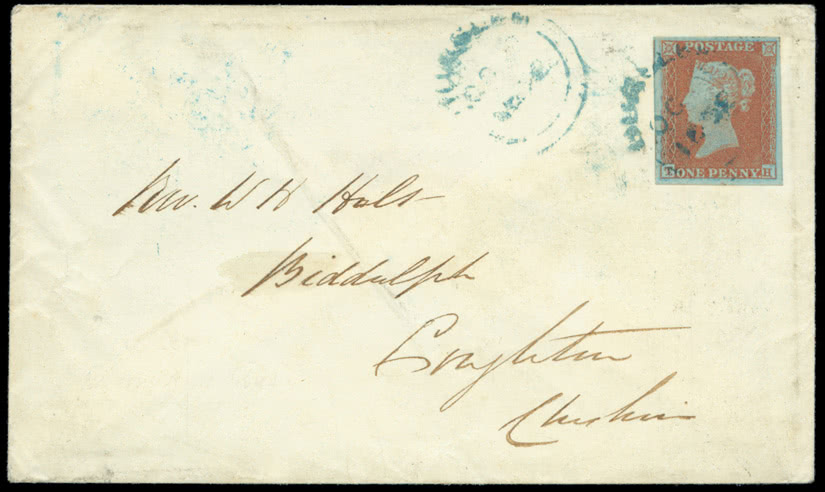 POSTAGE
T ONE PENNY H
Rev. W H Holt
Biddulph
Congleton
Cheshire